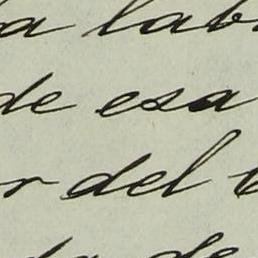 a lab
de esa
r del
de